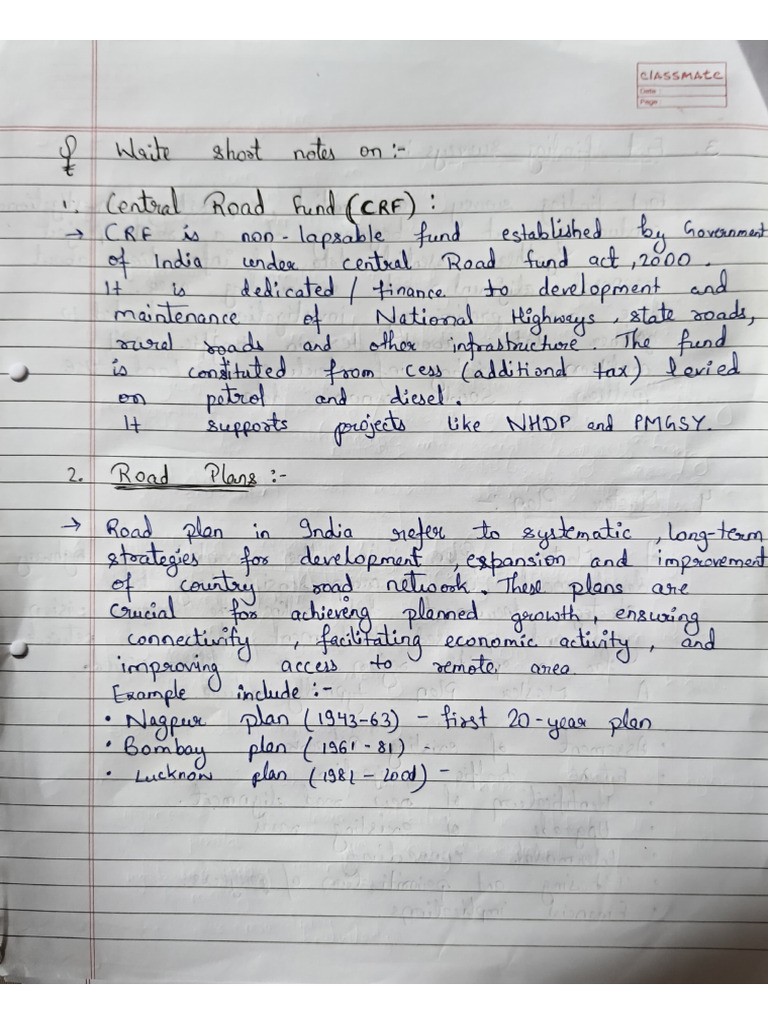 classmate
Date :
Page :
Q Write short notes on :-
1. Central Road Fund (CRF) :
→ CRF is non-lapsable fund established by Government
of India under central Road fund act, 2000.
It is dedicated / finance to development and
maintenance of National Highways, state roads,
rural roads and other infrastructure. The fund
is constituted from cess (additional tax) levied
on petrol and diesel.
It supports projects like NHDP and PMGSY.
2. Road Plans :-
→ Road plan in India refer to systematic, long-term
strategies for development, expansion and improvement
of country road network. These plans are
crucial for achieveng planned growth, ensuring
connectivity, facilitating economic activity, and
improving access to remote area.
Example include :-
• Nagpur plan (1943-63) - first 20-year plan
• Bombay plan (1961-81) -
• Lucknow plan (1981-2001) -